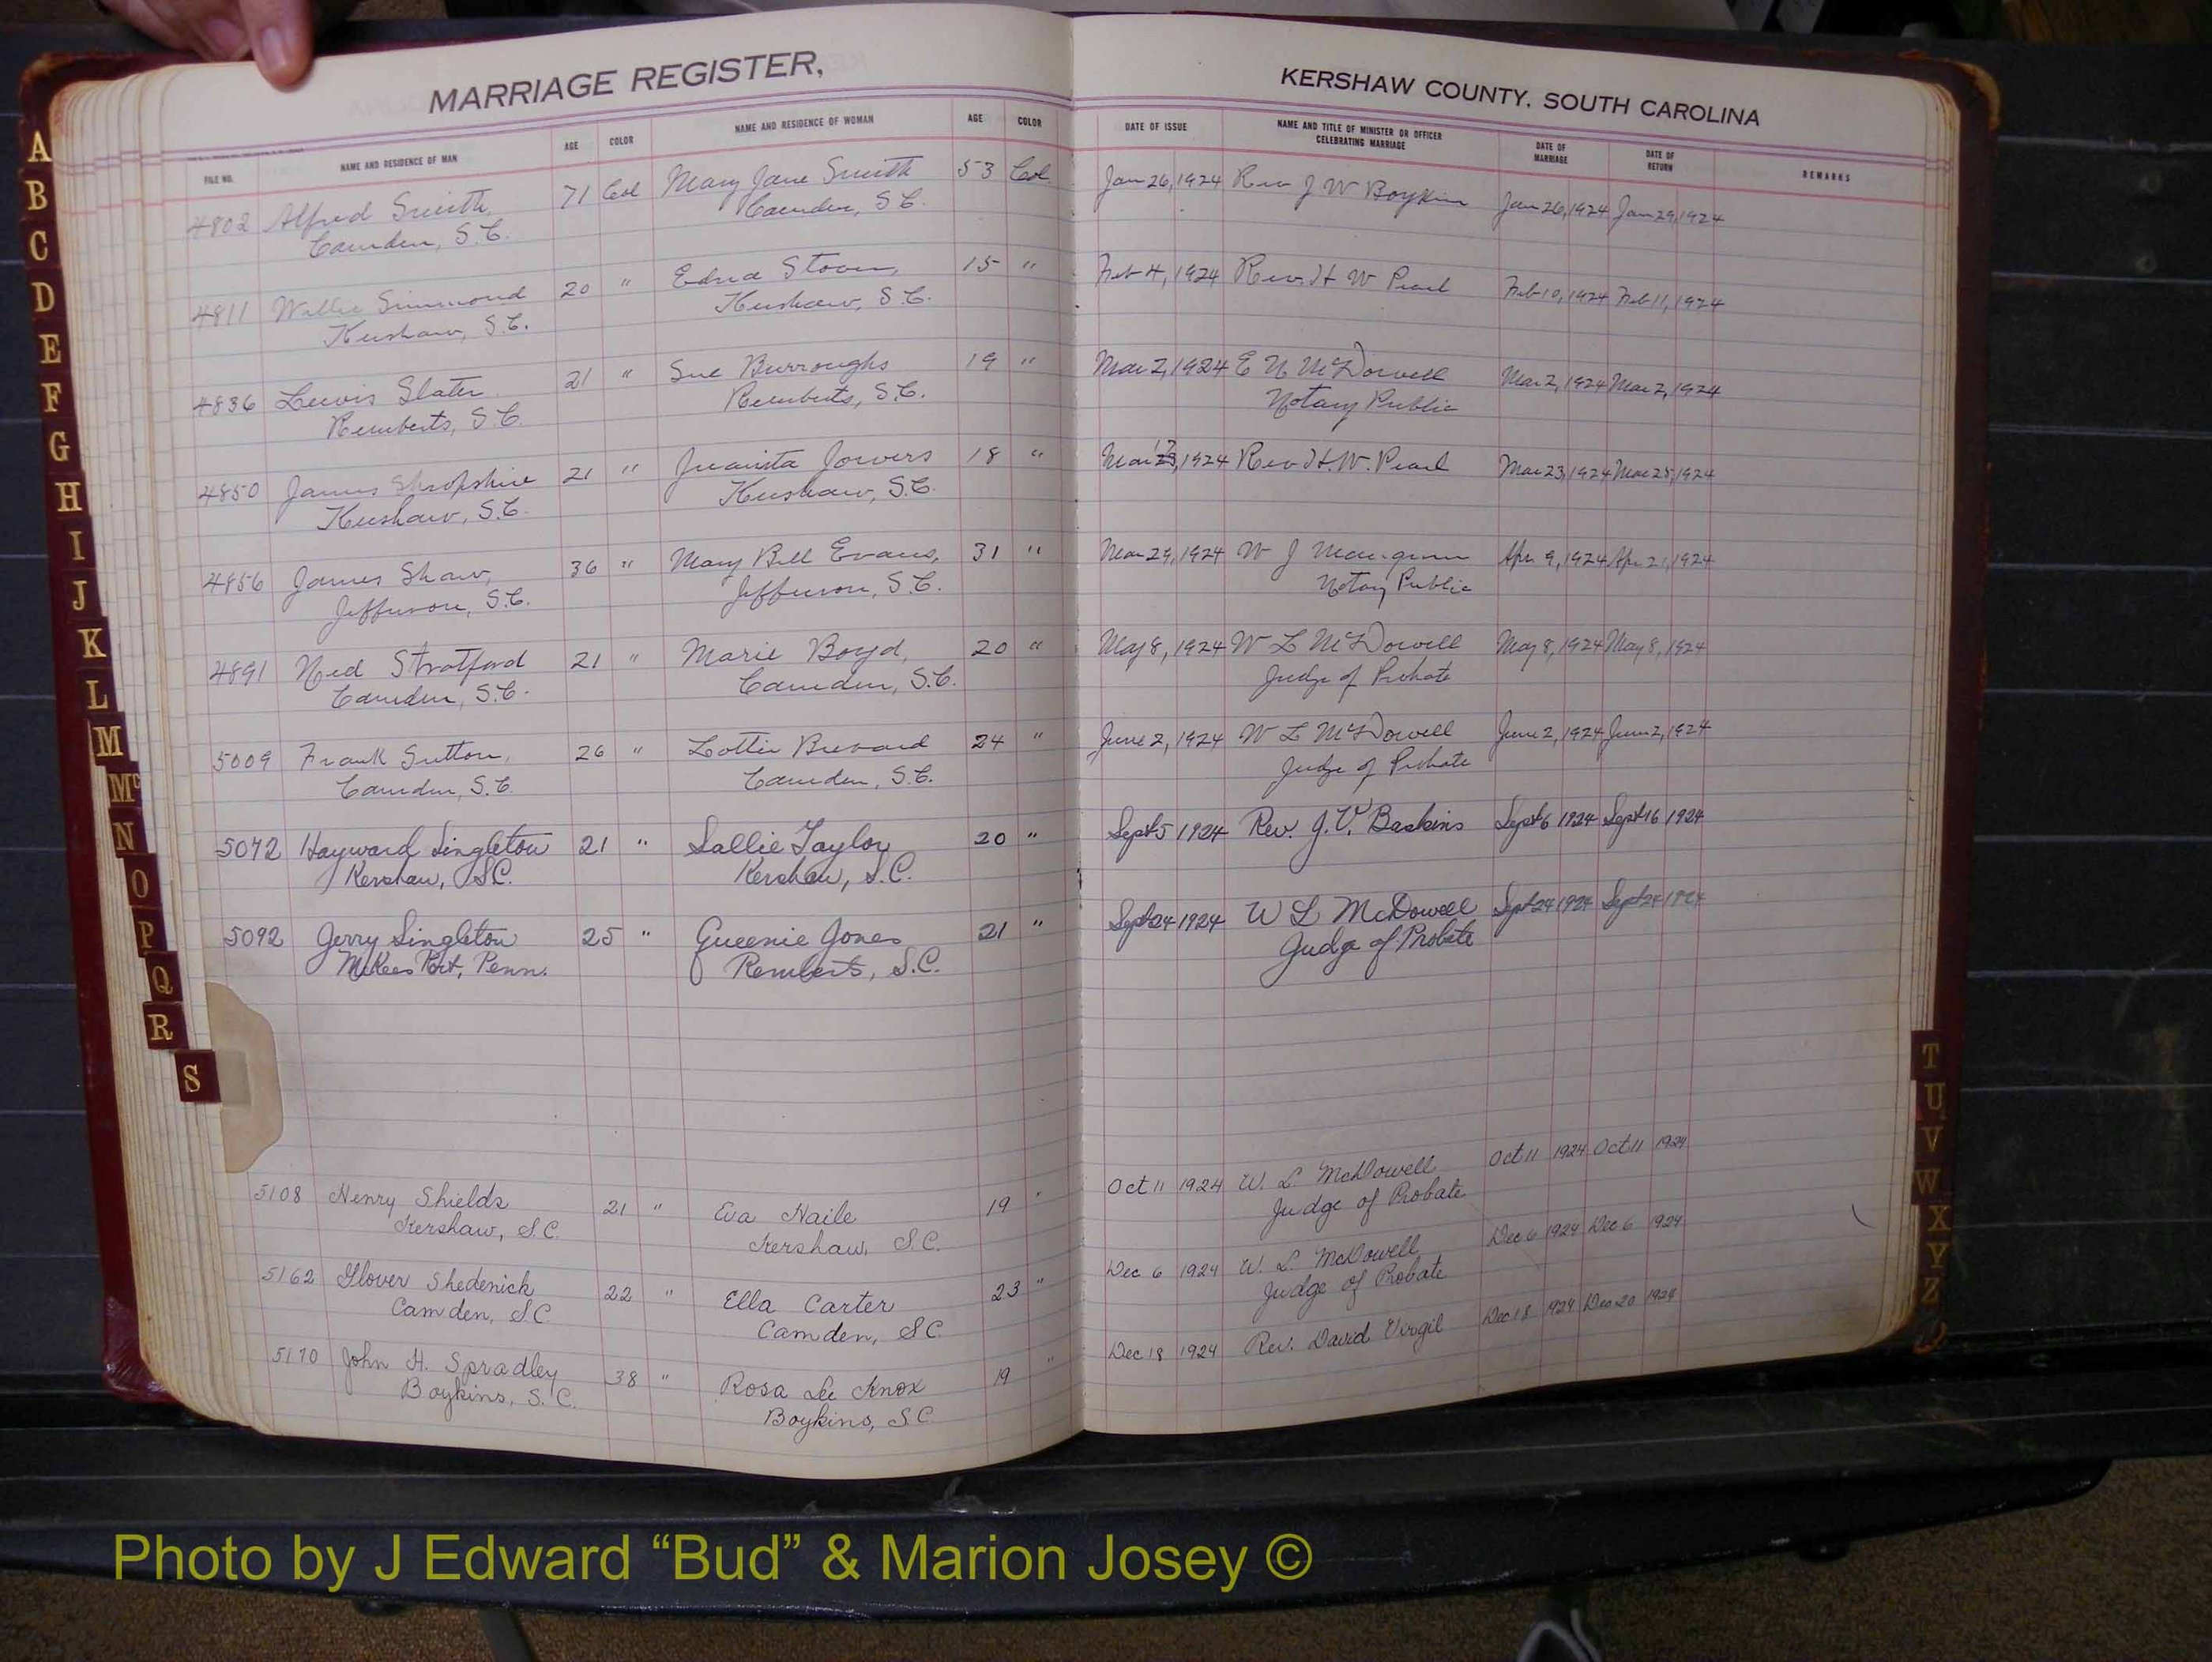 MARRIAGE REGISTER,
KERSHAW COUNTY, SOUTH CAROLINA
FILE NO. NAME AND RESIDENCE OF MAN AGE COLOR NAME AND RESIDENCE OF WOMAN AGE COLOR DATE OF ISSUE NAME AND TITLE OF MINISTER OR OFFICER CELEBRATING MARRIAGE DATE OF MARRIAGE DATE OF RETURN REMARKS
4802 Alfred Smith 71 Col Mary Jane Smith 53 Col. Jan 26, 1924 Rev J W Boykin Jan 26, 1924 Jan 29, 1924
Camden, S.C. Camden, S.C.
4811 Willie Simmond 20 " Edna Stover, 15 " Feb 4, 1924 Rev. H W Pearl Feb 10, 1924 Feb 11, 1924
Kershaw, S.C. Kershaw, S.C.
4836 Lewis Slater 21 " Sue Burroughs 19 " Mar 2, 1924 E N McDowell Mar 2, 1924 Mar 2, 1924
Remberts, S.C. Remberts, S.C. Notary Public
4850 James Shropshire 21 " Juanita Jowers 18 " Mar 1924 Rev H. W. Pearl Mar 23, 1924 Mar 25, 1924
Kershaw, S.C. Kershaw, S.C.
4856 James Shaw, 36 " Mary Bell Evans, 31 " Mar 29, 1924 W J Apr. 9, 1924 Apr. 21, 1924
Jefferson, S.C. Jefferson, S.C. Notary Public
4891 Ned Stratford 21 " Marie Boyd, 20 " May 8, 1924 W L McDowell May 8, 1924 May 8, 1924
Camden, S.C. Camden, S.C. Judge of Probate
5009 Frank Sutton, 26 " Lottie Brevard 24 " June 2, 1924 W L McDowell June 2, 1924 June 2, 1924
Camden, S.C. Camden, S.C. Judge of Probate
5072 Hayward Singleton 21 " Sallie Taylor 20 " Sept 5 1924 Rev. J. V. Baskins Sept 6 1924 Sept 16 1924
Kershaw, S.C. Kershaw, S.C.
5092 Jerry Singleton 25 " Queenie Jones 21 " Sept 24 1924 W L McDowell Sept 24 1924 Sept 24 1924
McKees Port, Penn. Remberts, S.C. Judge of Probate
5108 Henry Shields 21 " Eva Haile 19 " Oct 11 1924 W. L. McDowell Oct 11 1924 Oct 11 1924
Kershaw, S.C. Kershaw, S.C. Judge of Probate
5162 Glover Shedenick 22 " Ella Carter 23 " Dec 6 1924 W. L. McDowell Dec 6 1924 Dec 6 1924
Camden, S.C. Camden, S.C. Judge of Probate
5170 John H. Spradley 38 " Rosa Lee Knox 19 " Dec 18 1924 Rev. David Virgil Dec 18 1924 Dec 20 1924
Boykins, S.C. Boykins, S.C.
A
B
C
D
E
F
G
H
I
J
K
L
M
Mc
N
O
P
Q
R
S
T
U
V
W
X
Y
Z
Photo by J Edward “Bud” & Marion Josey ©